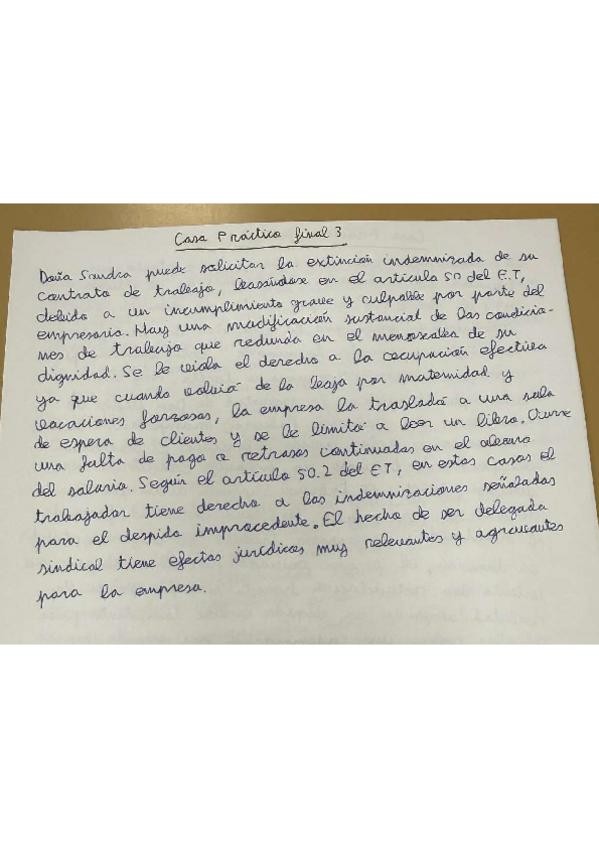 Caso Práctico final 3
Doña Sandra puede solicitar la extinción indemnizada de su
contrato de trabajo, basándose en el artículo 50 del E.T,
debido a un incumplimiento grave y culpable por parte del
empresario. Hay una modificación sustancial de las condicio-
nes de trabajo que redunda en el menoscabo de su
dignidad. Se le viola el derecho a la ocupación efectiva
ya que cuando volvió de la baja por maternidad y
vacaciones forzosas, la empresa la trasladó a una sala
de espera de clientes y se le limitó a leer un libro. Ocurre
una falta de pago o retrasos continuados en el abono
del salario. Según el artículo 50.2 del ET, en estos casos el
trabajador tiene derecho a las indemnizaciones señaladas
para el despido improcedente. El hecho de ser delegada
sindical tiene efectos jurídicos muy relevantes y agravantes
para la empresa.